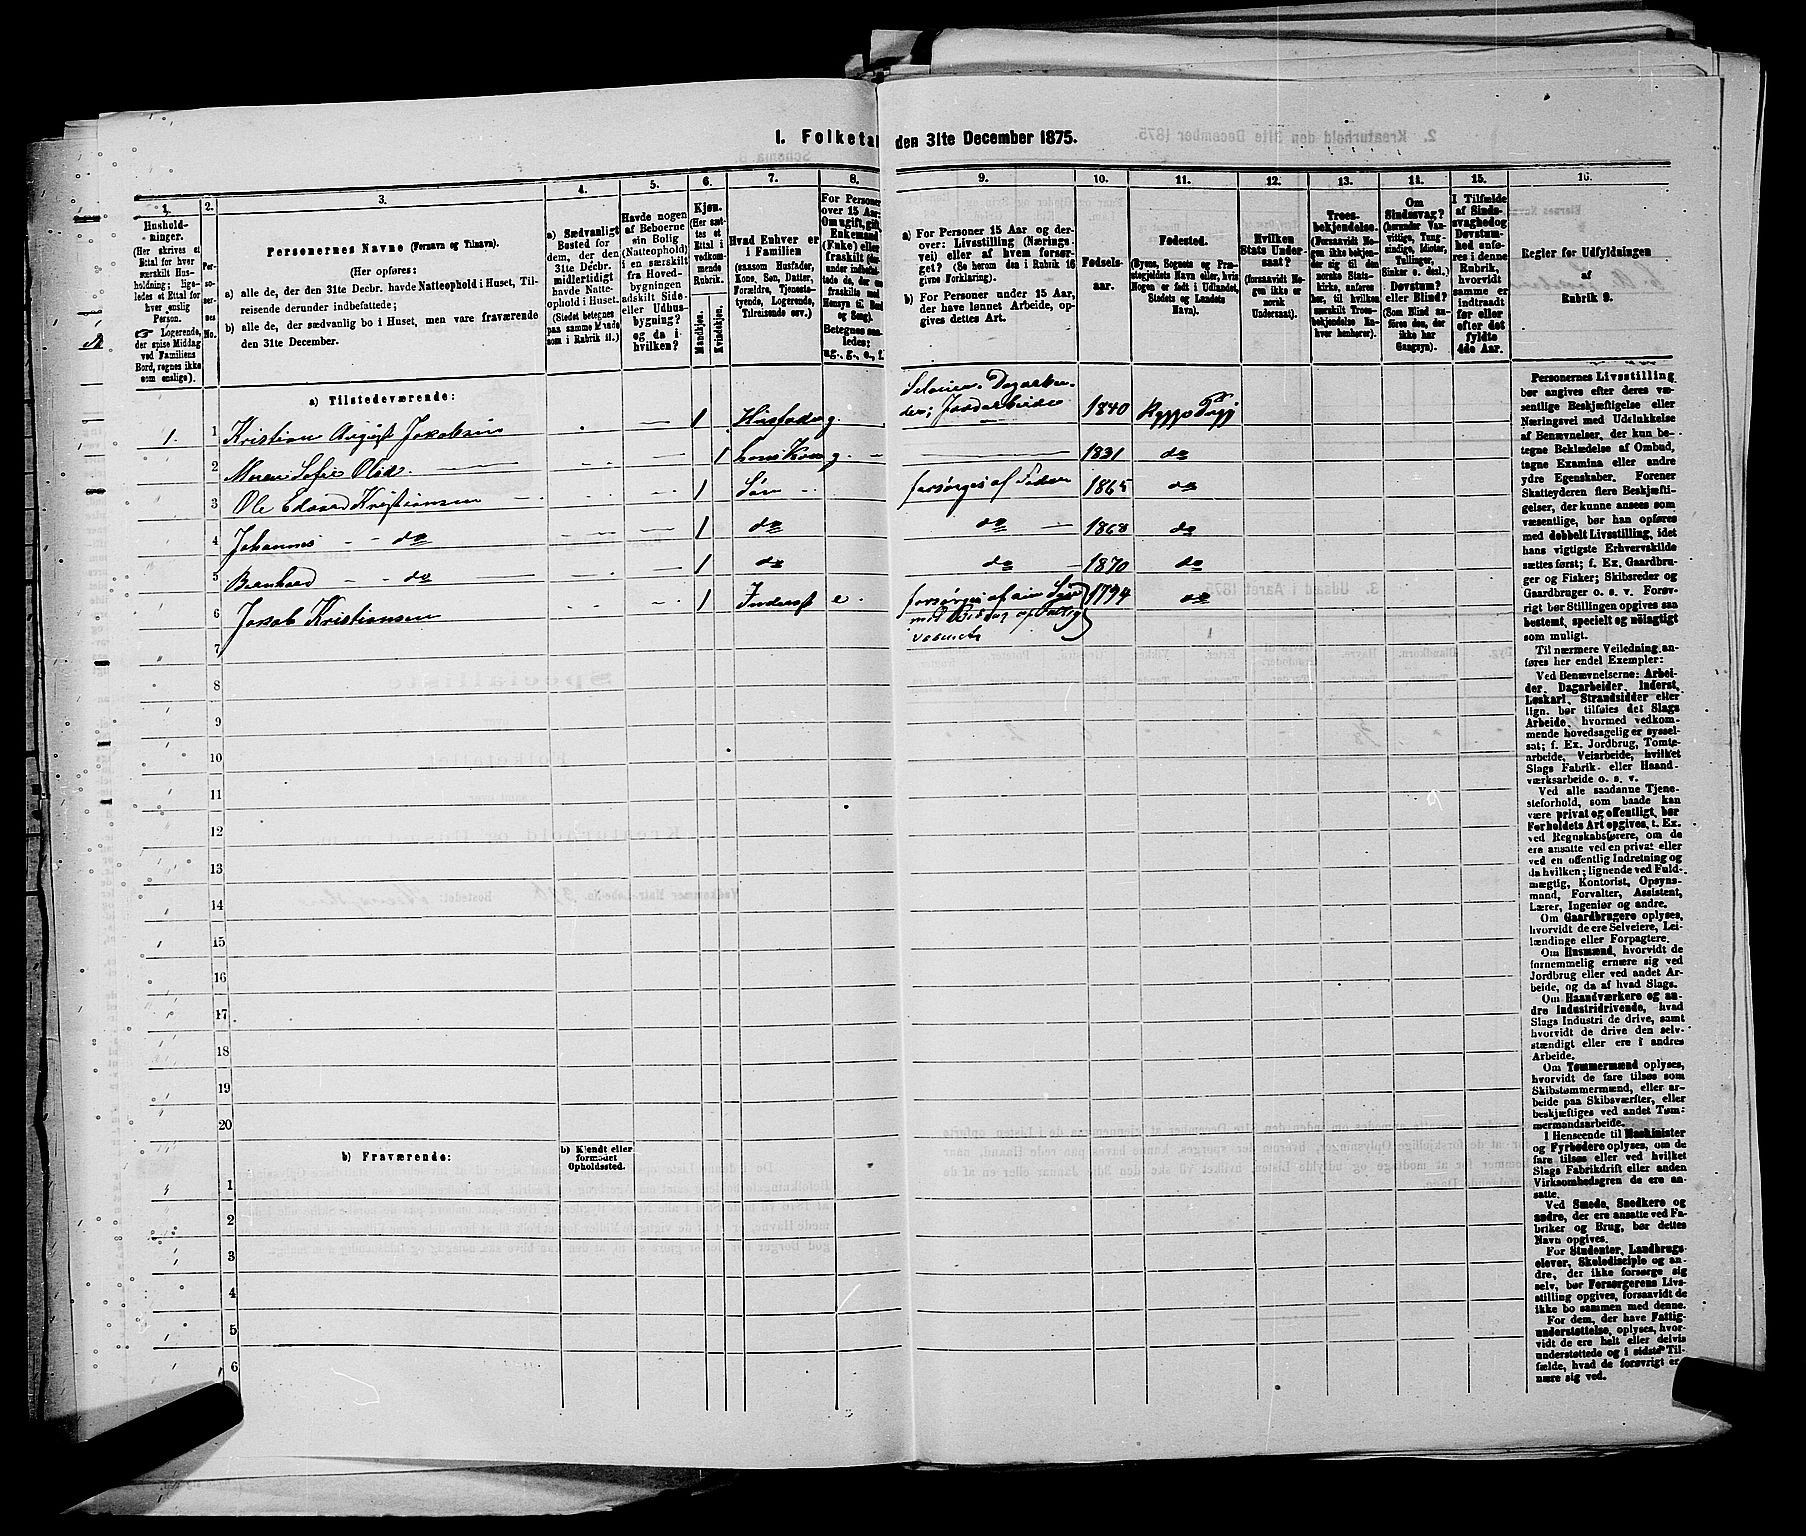 1. Folketa den 31te December 1875.
1. 2. 3. 4. 5. 6. 7. 8. 9. 10. 11. 12. 13. 14. 15. 16.
Hushold-
ninger.
(Her skrives et
Ettal for hver
særskilt Hus-
holdning; lige-
ledes et Ettal for
hver enslig
Person.
☞ Logerende,
der spise Middag
ved Familiens
Bord, regnes ikke
som enslige).
Per-
so-
ner-
nes
No.
Personernes Navne (Fornavn og Tilnavn).
(Her opføres:
a) alle de, der den 31te Decbr. havde Natteophold i Huset, Til-
reisende derunder indbefattede;
b) alle de, der sædvanlig bo i Huset, men vare fraværende
den 31te December.
a) Sædvanligt
Bosted for
dem, der den
31te Decbr.
midlertidigt
havde Natte-
ophold i Huset.
(Stedet betegnes
paa samme Maade
som i Rubrik 11.)
Havde nogen
af Beboerne
sin Bolig
(Natteophold)
i en særskilt
fra Hoved-
bygningen
adskilt Side-
eller Udhus-
bygning?
og da i
hvilken?
Kjøn.
(Her sæt-
tes et
Ettal i
vedkom-
mende
Rubrik.
Mandkjøn.
Kvindekjøn.
Hvad Enhver er
i Familien
(saasom Husfader,
Kone, Søn, Datter,
Forældre, Tjeneste-
tyende, Logerende,
Tilreisende osv.)
For Personer
over 15 Aar:
Ugift, gift,
Enkemand
(Enke) eller
fraskilt
Betegnes saa-
ledes:
ug., g., e., f.
a) For Personer 15 Aar og der-
over: Livsstilling (Nærings-
vei) eller af hvem forsør-
get? (Se herom den i Rubrik 16
givne Forklaring).
b) For Personer under 15 Aar,
der have lønnet Arbeide, op-
gives dettes Art.
Fødsels-
aar.
Fødested.
(Byens, Sognets og Præ-
stegjeldets Navn eller, hvis
Nogen er født i Udlandet,
Stedets og Landets
Navn).
Hvilken
Stats Under-
saat?
(forsaavidt No-
gen ikke er
norsk
Undersaat).
Troes-
bekjendelse.
(Forsaavidt No-
gen ikke bekjen-
der sig til den
norske Stats-
kirke, anføres
her, til hvilken
særskilt Troes-
bekjendelse En-
hver henhører).
Om
Sindssvag?
(herunder Van-
vittige, Tung-
sindige, Idioter,
Tullinger,
Sinker o. desl.)
Døvstum?
eller Blind?
(Som Blind an-
føres den, der
ikke har
Gangsyn).
I Tilfælde
af Sinds-
svaghed og
Døvstum-
hed anfø-
res i denne
Rubrik,
hvorvidt
samme er
indtraadt
før eller
efter det
fyldte
4de Aar.
Regler for Udfyldningen
af
Rubrik 9.
a) Tilstedeværende:
1. 1 Kristian August Jakobsen 1 Husfader g. 1840 Rygge Pgj
2 Maren Sofie Olsd. 1 hans Kone g. 1831 do
3 Ole Edvard Kristiansen 1 Søn forsørges af Faderen 1865 do
4 Johannes do 1 do do 1868 do
5 Bernhard do 1 do do 1870 do
6 Jakob Kristiansen 1 Inderst e. forsørges af sin Søn 1794 do
med Bidrag af Fattig-
væsenet
7
8
9
10
11
12
13
14
15
16
17
18
19
20
b) Fraværende:
b) Kjendt eller
formodet
Opholdssted.
1
2
3
4
5
6
Personernes Livsstilling
bør angives efter deres væ-
sentlige Beskjæftigelse eller
Næringsvei med Udelukkelse
af Benævnelser, der kun be-
tegne Beklædelse af Ombud,
tagne Examina eller andre
ydre Egenskaber. Forener
Skatteyderen flere Beskjæfti-
gelser, der kunne ansees som
væsentlige, bør han opføres
med dobbelt Livsstilling, idet
hans vigtigste Erhvervskilde
sættes først; f. Ex. Gaardbru-
ger og Fisker; Skibsreder og
Gaardbruger o. s. v. Forøv-
rigt bør Stillingen opgives saa
bestemt, specielt og nøiagtigt
som muligt.
Til nærmere Veiledning an-
føres her endel Exempler:
Ved Benævnelserne: Arbei-
der, Dagarbeider, Inderst,
Løskarl, Strandsidder eller
lign. bør tilføies det Slags
Arbeide, hvormed vedkom-
mende hovedsagelig er syssel-
sat; f. Ex. Jordbrug, Tomte-
arbeide, Veiarbeide, hvilket
Slags Fabrik- eller Haand-
værksarbeide o. s. v.
Ved alle saadanne Tjene-
steforhold, som baade kan
være privat og offentligt, bør
Forholdets Art opgives, t. Ex.
ved Regnskabsførere, om de
ere ansatte ved en privat eller
ved en offentlig Indretning og
da hvilken; lignende ved Fuld-
mægtig, Kontorist, Opsyns-
mand, Forvalter, Assistent,
Lærer, Ingeniør og andre.
Om Gaardbrugere oplyses,
hvorvidt de ere Selveiere, Lei-
lændinge eller Forpagtere.
Om Husmænd, hvorvidt de
fornemmelig ernære sig ved
Jordbrug eller ved andet Ar-
beide, og da af hvad Slags.
Om Haandværkere og an-
dre Industridrivende, hvad
Slags Industri de drive, samt
hvorvidt de drive den selv-
stændigt eller ere i andres
Arbeide.
Om Tømmermænd oplyses,
hvorvidt de fare tilsøs som
Skibstømmermænd, eller ar-
beide paa Skibsværfter, eller
beskjæftiges ved andet Tøm-
mermandsarbeide.
I Henseende til Maskinister
og Fyrbødere oplyses, om de
fare tilsøs eller ved hvilket
Slags Fabrikdrift eller anden
Virksomhedsgren de ere an-
satte.
Ved Smede, Snedkere og
andre, der ere ansatte ved Fa-
briker og Brug, bør dettes
Navn opgives.
For Studenter, Landbrugs-
elever, Skoledisciple og an-
dre, der ikke forsørge sig
selv, bør Forsørgerens Livs-
stilling opgives, forsaavidt de
ikke bo sammen med denne.
For dem, der have Fattig-
understøttelse, oplyses, hvor-
vidt de ere helt eller delvis
understøttede og i sidste Til-
fælde, hvad de forøvrigt er-
nære sig ved.